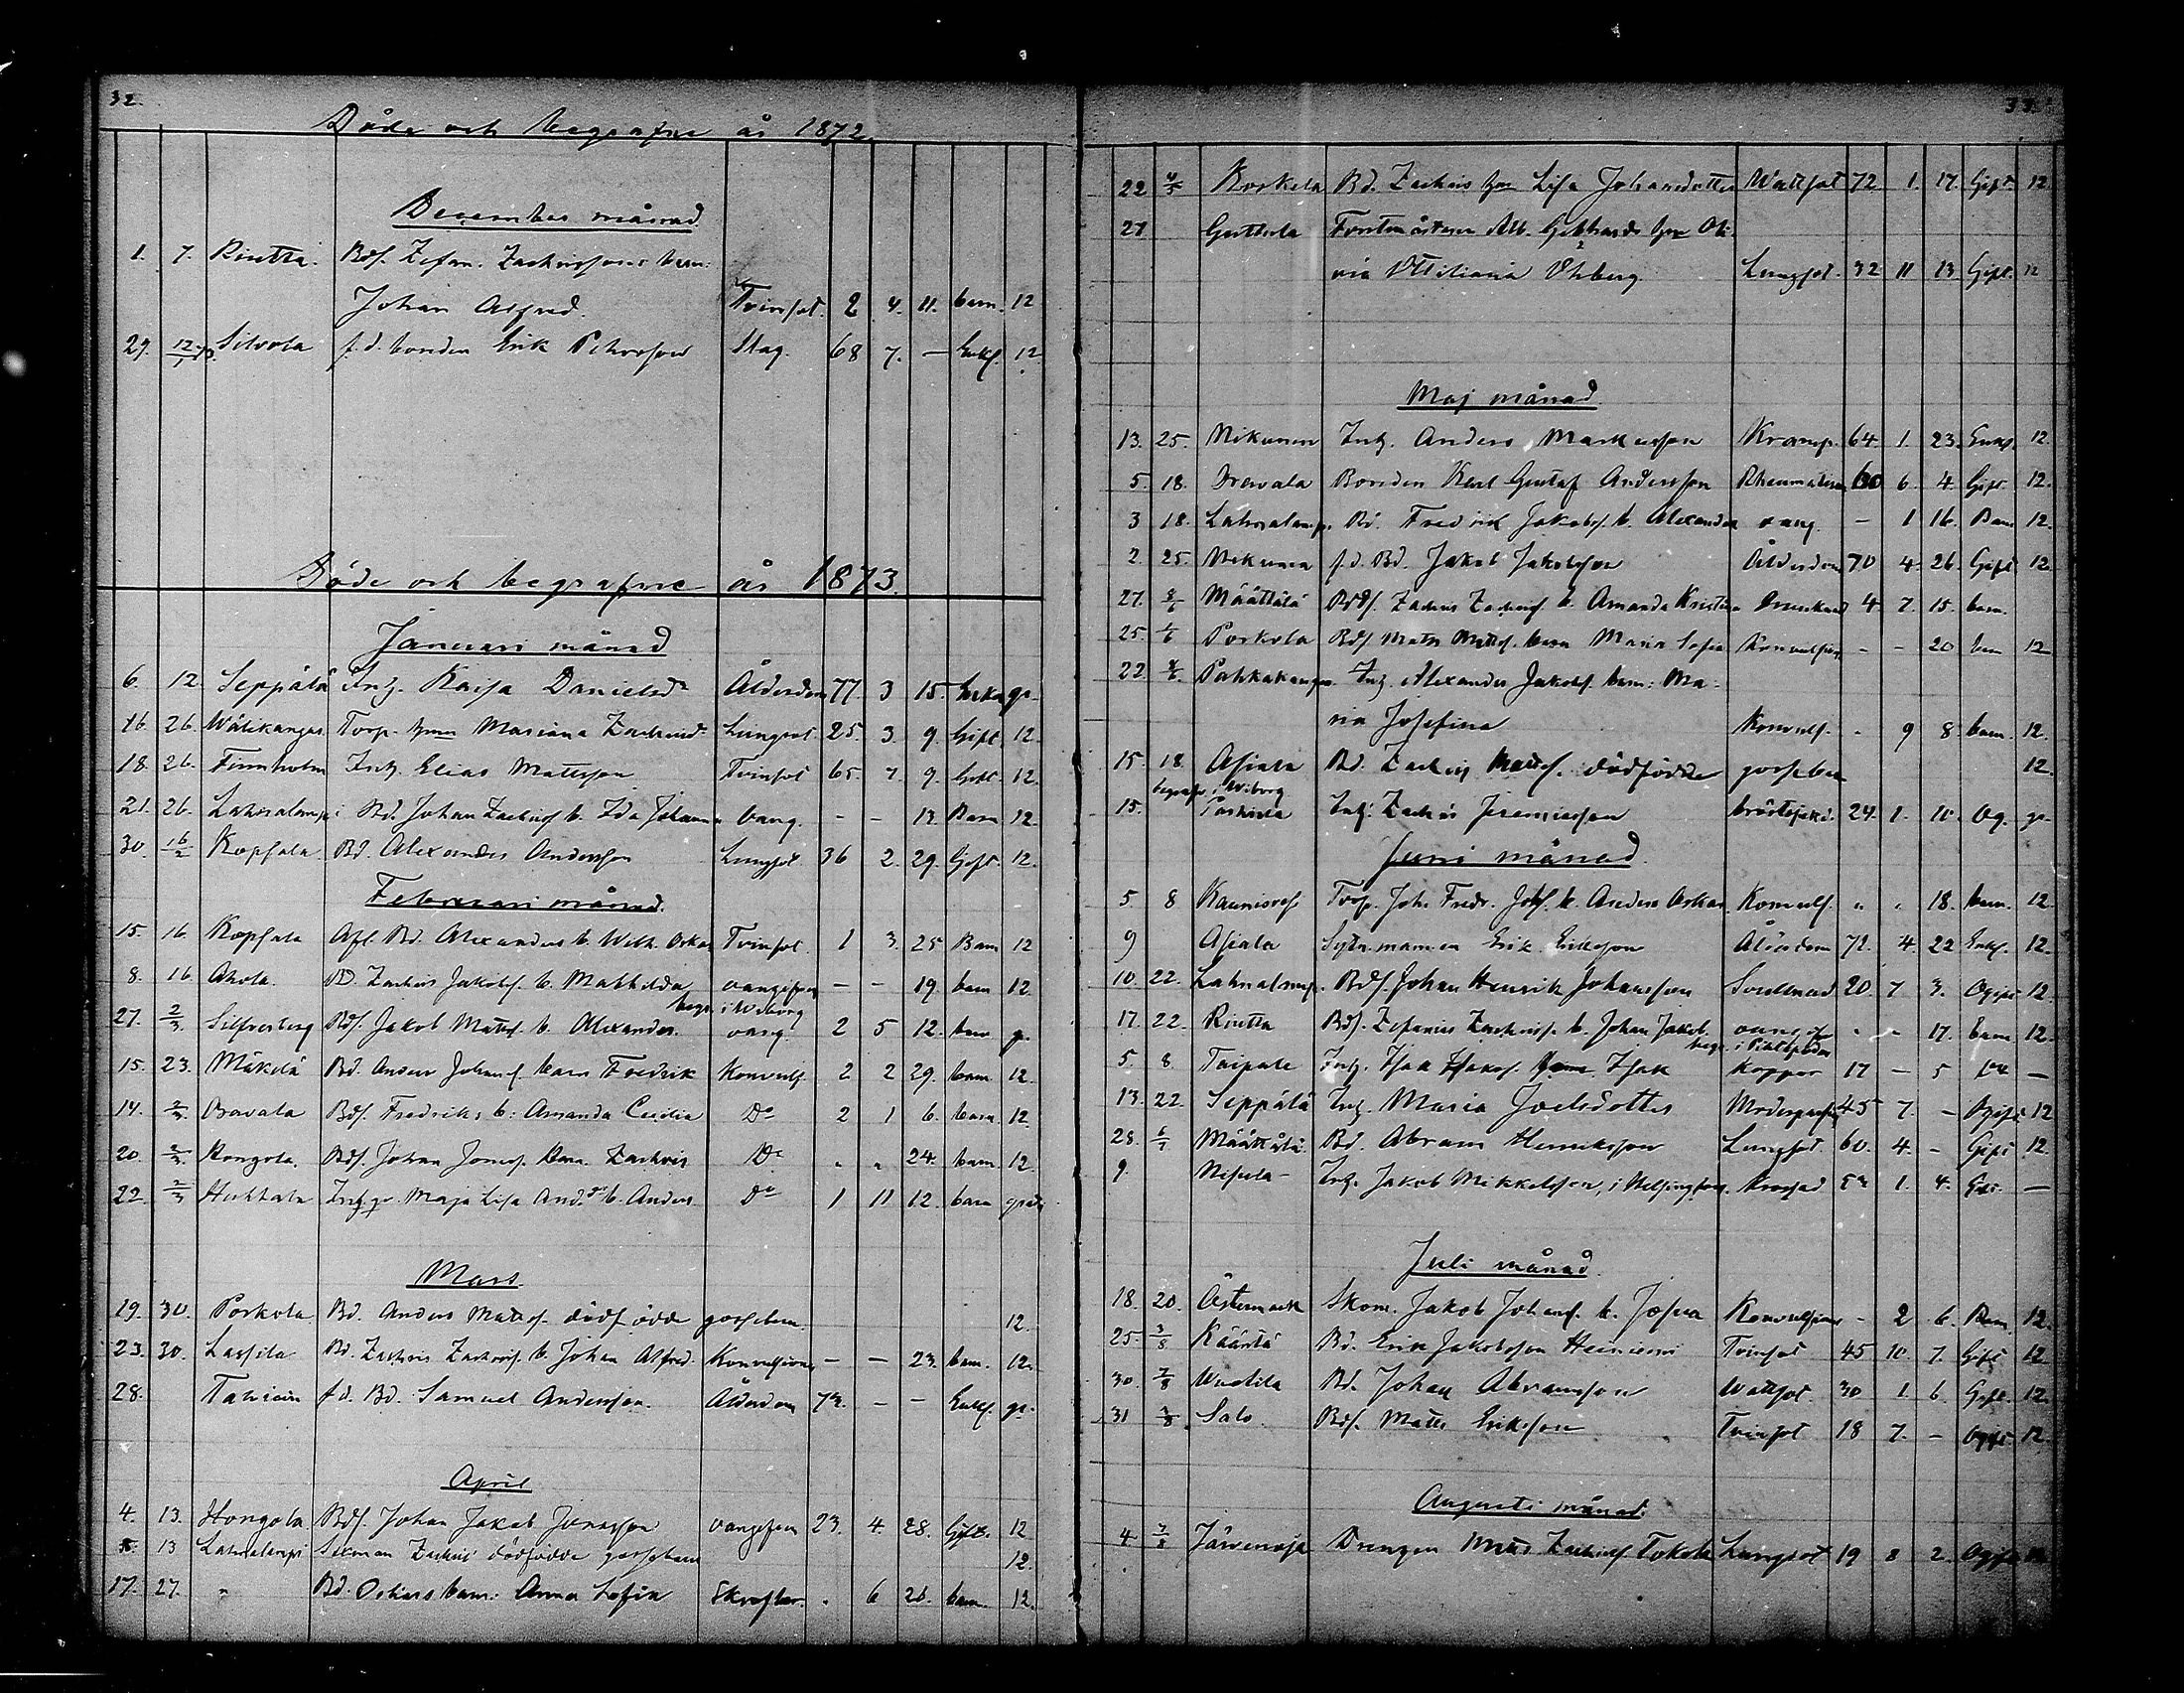 32.
Döde och begrafne år 1872
December månad.
1. 7. Rintta. Bds. Zefan. Zachrissons barn:
Johan Alfred. Tvinsot. 2 4. 11. barn. 12
29. 12/1 73. Silvola f.d. bonden Erik Petersson Slag. 68 7. — Enkl. 12.
Döde och begrafne år 1873.
Januari månad
6. 12. Seppälä Inh. Kaisa Danielsdr Ålderdom 77. 3 15. Enka gr.
16. 26. Wälikangas. Torp. hru Mariana Zachrisd. Lungsot. 25. 3. 9. Gift. 12.
18. 26. Finnholm Inh. Elias Mattsson Tvinsot 65. 7. 9. Gift. 12.
21. 26. Lahnalampi Bd. Johan Zachriss. b. Ida Johanna oang. - - 13. Barn 12.
30. 16/2 Kopsala. Bd. Alexander Andersson Lungsot. 36 2. 29. Gift. 12.
Februari månad.
15. 16. Kopsala Afl. Bd. Alexanders b. Wilh. Oskar Tvinsot. 1 3. 25 Barn 12
8. 16 Ahola. Bd. Zachris Jakobs. b. Mathilda oangifven — - 19. barn 12.
begr. i Wiborg
27. 2/3. Silfverberg Bds. Jakob Matts. b. Alexander. oang. 2 5 12. barn gr.
15. 23. Mäkelä Bd. Anders Johans. barn Fredrik Konvuls. 2 2 29. barn 12.
14. 2/3. Oravala Bds. Fredriks b: Amanda Cecilia Do 2 1 6. barn. 12.
20. 2/3. Kongola. Bds. Johan Jonas. barn Zachris Do „ „ 24. barn. 12.
22. 2/3 Huhtala Inh. gr. Maja Lisa And.dr b. Anders Do 1 11 12. barn gratis
Mars.
19. 30. Porkola Bd. Anders Matts. dödfödde gossebarn. 12.
23. 30. Lassila Bd. Zachris Zachris. b. Johan Alfred. Konvulsioner — — 23. barn. 12.
28. f.d. Bd. Samuel Andersson. Ålderdom — — Enkl. gr.
April
4. 13. Hongola Bds. Johan Jakob Jonasson oangifven 23. 4. 28. Gift. 12
13 Lahnalampi Zachris dödfödde gossebarn 12.
17. 27. „ Bd. Oskars barn: Anna Sofia . 6 barn. 12.
33.
22 4/5 Korkela Bd. Zachris hru Lisa Johansdotter Wattsot 72 1. 17. Gift. 12.
27 Forstmästaren Alb. Gebhards hru Oli-
via Ohberg. Lungsot. 32 11 13. Gift. 12
Maj månad.
13. 25. Nikunen Inh. Anders Markusson Kramp. 64. 1. 23. Enkl. 12.
5. 18. Oravala Bonden Karl Gustaf Andersson Rheumatism 6. 4. Gift. 12.
3 18. Lahnalampi Bd. Fredrik Jakobs. b. Alexander oang. - 1 16. Barn 12.
2. 25. Nikunen f.d. Bd. Jakob Jakobsson Ålderdom 70 4. 26. Gift 12.
27. 8/6 Määttälä Bds. Zachris Zachriss. b. Amanda Kristina 4. 7. 15. barn.
25. 1/6 Porkola Bds. Matts Matts. barn Maria Sofia Konvulsion - - 20 barn 12
22. Pahkakangas Inh. Alexander Jakobs. barn: Ma-
ria Josefina Konvuls. - 9 8 barn. 12.
15. 18. Asiala Bd. Zachris Matts. dödfödde gossebarn 12.
begrafv. i Wiborg
15. Inh. Zachris Jeremiasson bröstsjukd. 24. 1. 10. Og. gr.
Juni månad.
5. 8 Torp. Joh. Fredr. Johs. b. Anders Oskar. Konvuls. „ „ 18. barn. 12
9 Asiala Sytn. mannen Erik Eriksson Ålderdom 72. 4. 22 Enkl. 12.
10. 22. Lahnalamp. Bds. Johan Henrik Johansson 20. 7 3. Ogift 12.
17. 22. Rintta Bds. Zefanias Zachriss. b. Johan Jakob. oangifven „ „ 17. barn. 12.
begr. i Pihtipudas
5. 8. Taipale Inh. Isak Isaks. Isak Koppor 17 — 5 —
13. 22. Seppälä Inh. Maria Joelsdotter 45 7. — Ogift 12
28. 6/7 Määttälä Bd. Abram Henriksson Lungsot. 60. 4. - Gift 12.
9. Nisula - Inh. Jakob Mikkelsson, i Helsingfors. 1. 4. —
Juli månad.
18. 20. Östermark Skom. Jakob Johans. b. Josua Konvulsioner - 2 6. Barn. 12.
25. 3/8 Kääntä Bd. Erik Jakobsson Heiniemi Tvinsot 45 10. 7. Gift 12
30. 3/8 Wuotila Bd. Johan Abramsson Wattsot. 30 1. 6. Gift. 12.
31 3/8 Salo. Bds. Matts Eriksson Tvinsot 18 7. - Ogift 12.
Augusti månad.
4 Järvenoja Drengen Matts Zachriss. Tokola Lungsot 19 8 2. Ogift 12